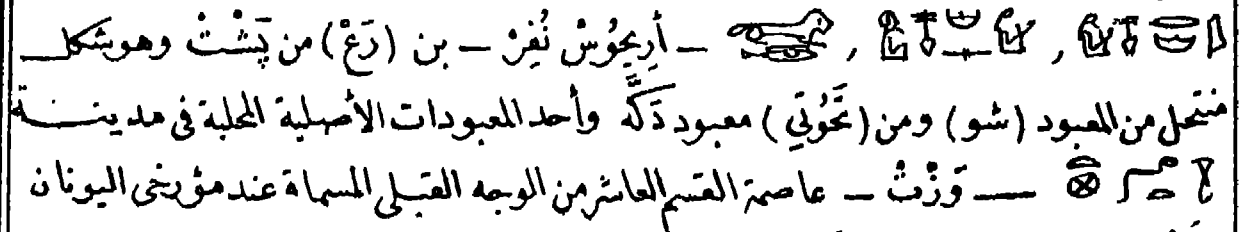 ـ أَرِيحُوُسْ نُفِرْ ـ بن (رَعْ) من پَشْتْ وهو شكل
منتحل من المعبود (شو) ومن (تَحُوُتِي) معبود دَكَّه وأحد المعبودات الأصلية المحلية فى مدينة
ـ وَزْتْ ـ عاصمة القسم العاشر من الوجه القبلى المسماة عند مؤرخى اليونان